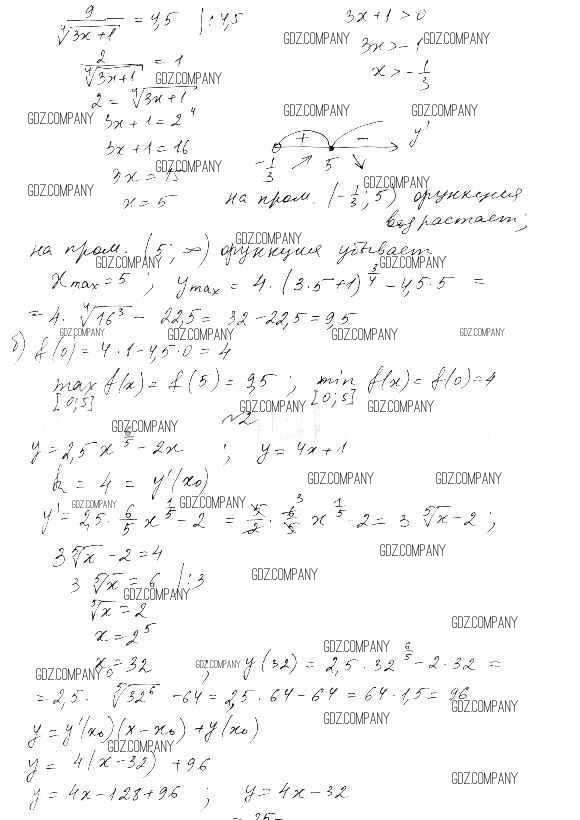 9/⁴√(3x+1) = 4,5 | : 4,5
3x+1 > 0
GDZ.COMPANY GDZ.COMPANY
3x > -1
2/⁴√(3x+1) = 1
GDZ.COMPANY
x > -1/3
2 = ⁴√(3x+1)
GDZ.COMPANY GDZ.COMPANY GDZ.COMPANY
3x+1 = 2⁴
+ - y'
3x+1 = 16
-1/3 5
GDZ.COMPANY
3x = 15
GDZ.COMPANY GDZ.COMPANY
x = 5
на пром. (-1/3; 5) функция
возрастает;
GDZ.COMPANY
на пром. (5; ∞) функция убывает
GDZ.COMPANY GDZ.COMPANY
x max = 5 ; y max = 4·(3·5+1)^(3/4) - 4,5·5 =
= 4·⁴√16³ - 22,5 = 32 - 22,5 = 9,5
GDZ.COMPANY GDZ.COMPANY GDZ.COMPANY GDZ.COMPANY
б) f(0) = 4·1 - 4,5·0 = 4
max [0;5] f(x) = f(5) = 9,5 ; min [0;5] f(x) = f(0) = 4
GDZ.COMPANY GDZ.COMPANY
№2
GDZ.COMPANY
y = 2,5 x^(6/5) - 2x ; y = 4x+1
k = 4 = y'(x₀)
GDZ.COMPANY GDZ.COMPANY
GDZ.COMPANY GDZ.COMPANY
y' = 2,5 · 6/5 x^(1/5) - 2 = 5/2 · 6/5 3 x^(1/5) - 2 = 3 ⁵√x - 2 ;
GDZ.COMPANY
3 ⁵√x - 2 = 4
GDZ.COMPANY
3 ⁵√x = 6 | : 3
GDZ.COMPANY
⁵√x = 2
GDZ.COMPANY
x = 2⁵
GDZ.COMPANY
x₀ = 32 ; y(32) = 2,5 · 32^(6/5) - 2·32 =
GDZ.COMPANY GDZ.COMPANY GDZ.COMPANY
= 2,5 · ⁵√32⁶ - 64 = 2,5 · 64 - 64 = 64 · 1,5 = 96
GDZ.COMPANY
y = y'(x₀)(x - x₀) + y(x₀)
GDZ.COMPANY
GDZ.COMPANY
y = 4(x - 32) + 96
GDZ.COMPANY
y = 4x - 128 + 96 ; y = 4x - 32